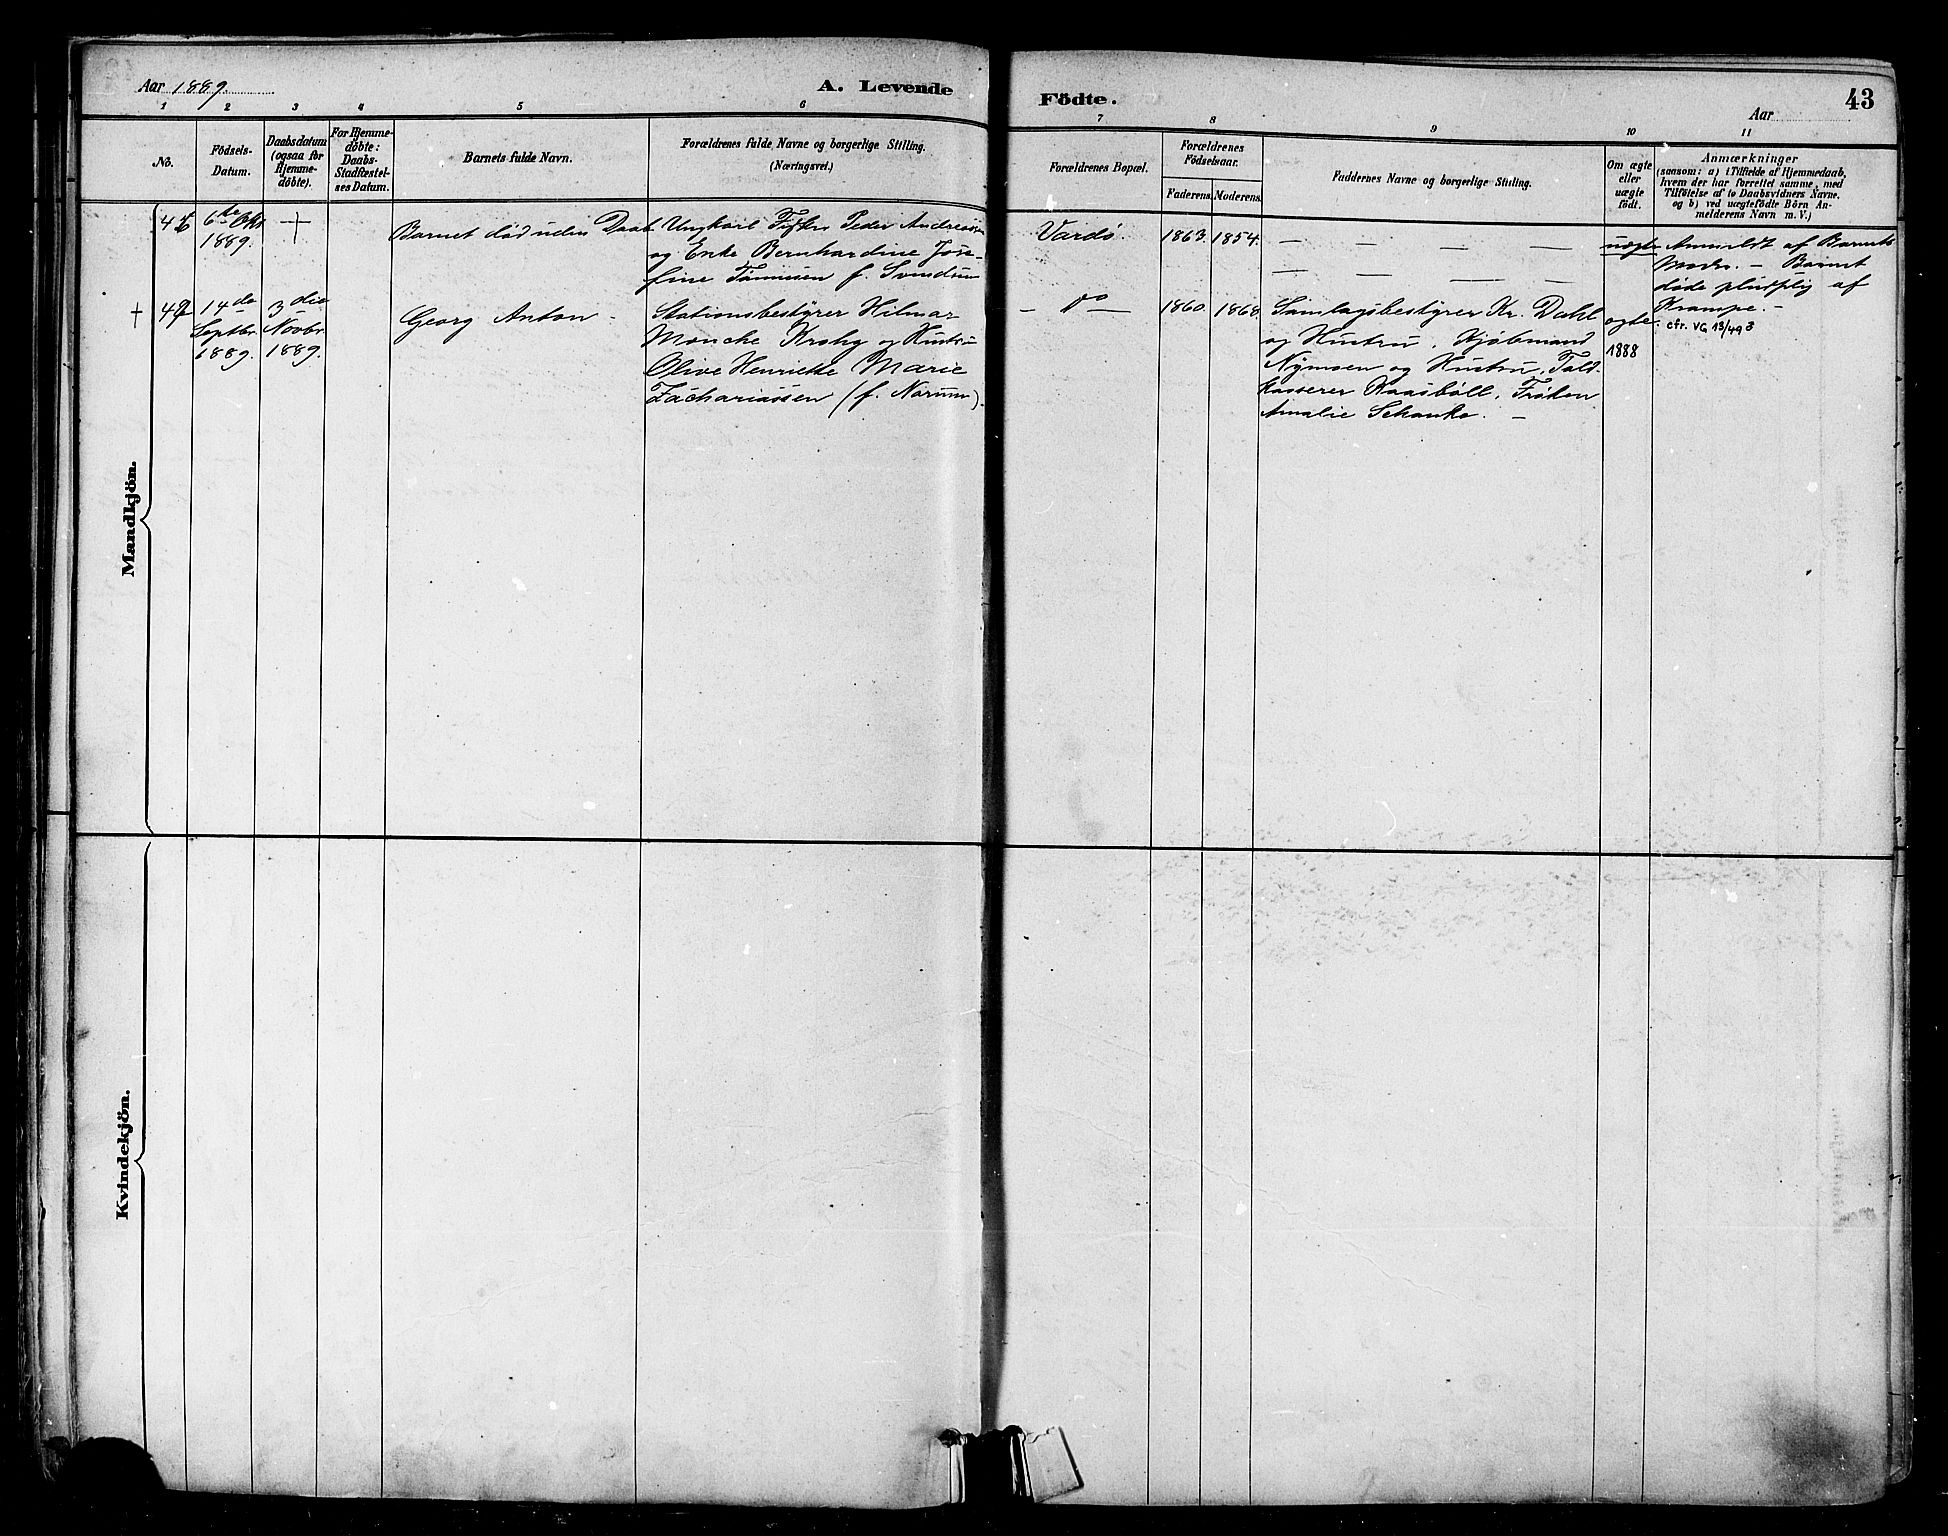 Aar 1889.
A. Levende
Födte.
Aar
43
1 2 3 4 5 6 7 8 9 10 11
No.
Födsels-Datum.
Daabsdatum (ogsaa for Hjemme-döbte).
For Hjemme-döbte: Daabs-Stadfæstel-ses Datum.
Barnets fulde Navn.
Forældrenes fulde Navne og borgerlige Stilling.
(Næringsvei.)
Forældrenes Bopæl.
Forældrenes Födselsaar.
Faderens. Moderens.
Faddernes Navne og borgerlige Stilling.
Om ægte eller uægte födt.
Anmærkninger
(saasom: a) i Tilfælde af Hjemmedaab,
hvem der har forrettet samme, med
Tilföielse af to Daabsvidners Navne.
og b) ved uægtefödte Börn An-
melderens Navn m. V.)
Mandkjön.
6te
1889.
Barnet död uden Daab.
Ungkarl Fisker Peder Andreassen
og Enke Bernhardine Jose-
fine
Vardö.
1863. 1854.
uægte
Anmeldt af Barnets
Moder. – Barnet
döde pludselig af
Krampe. –
14de
Septbr.
1889.
3die
Novbr.
1889.
Georg Anton
Stationsbestyrer Hilmar
Mönche Krohg og Hustru
Olive Henriette Marie
Zachariassen (f. Norum).
– do –
1860. 1868.
Samlagsbestyrer Kr. Dahl
og Hustru, Kjöbmand
Nymoen og Hustru, Told-
kasserer Raasböll, Fröken
Amalie Schanke. –
ægte.
1888
cfr. VG 13/49 3
Kvindekjön.